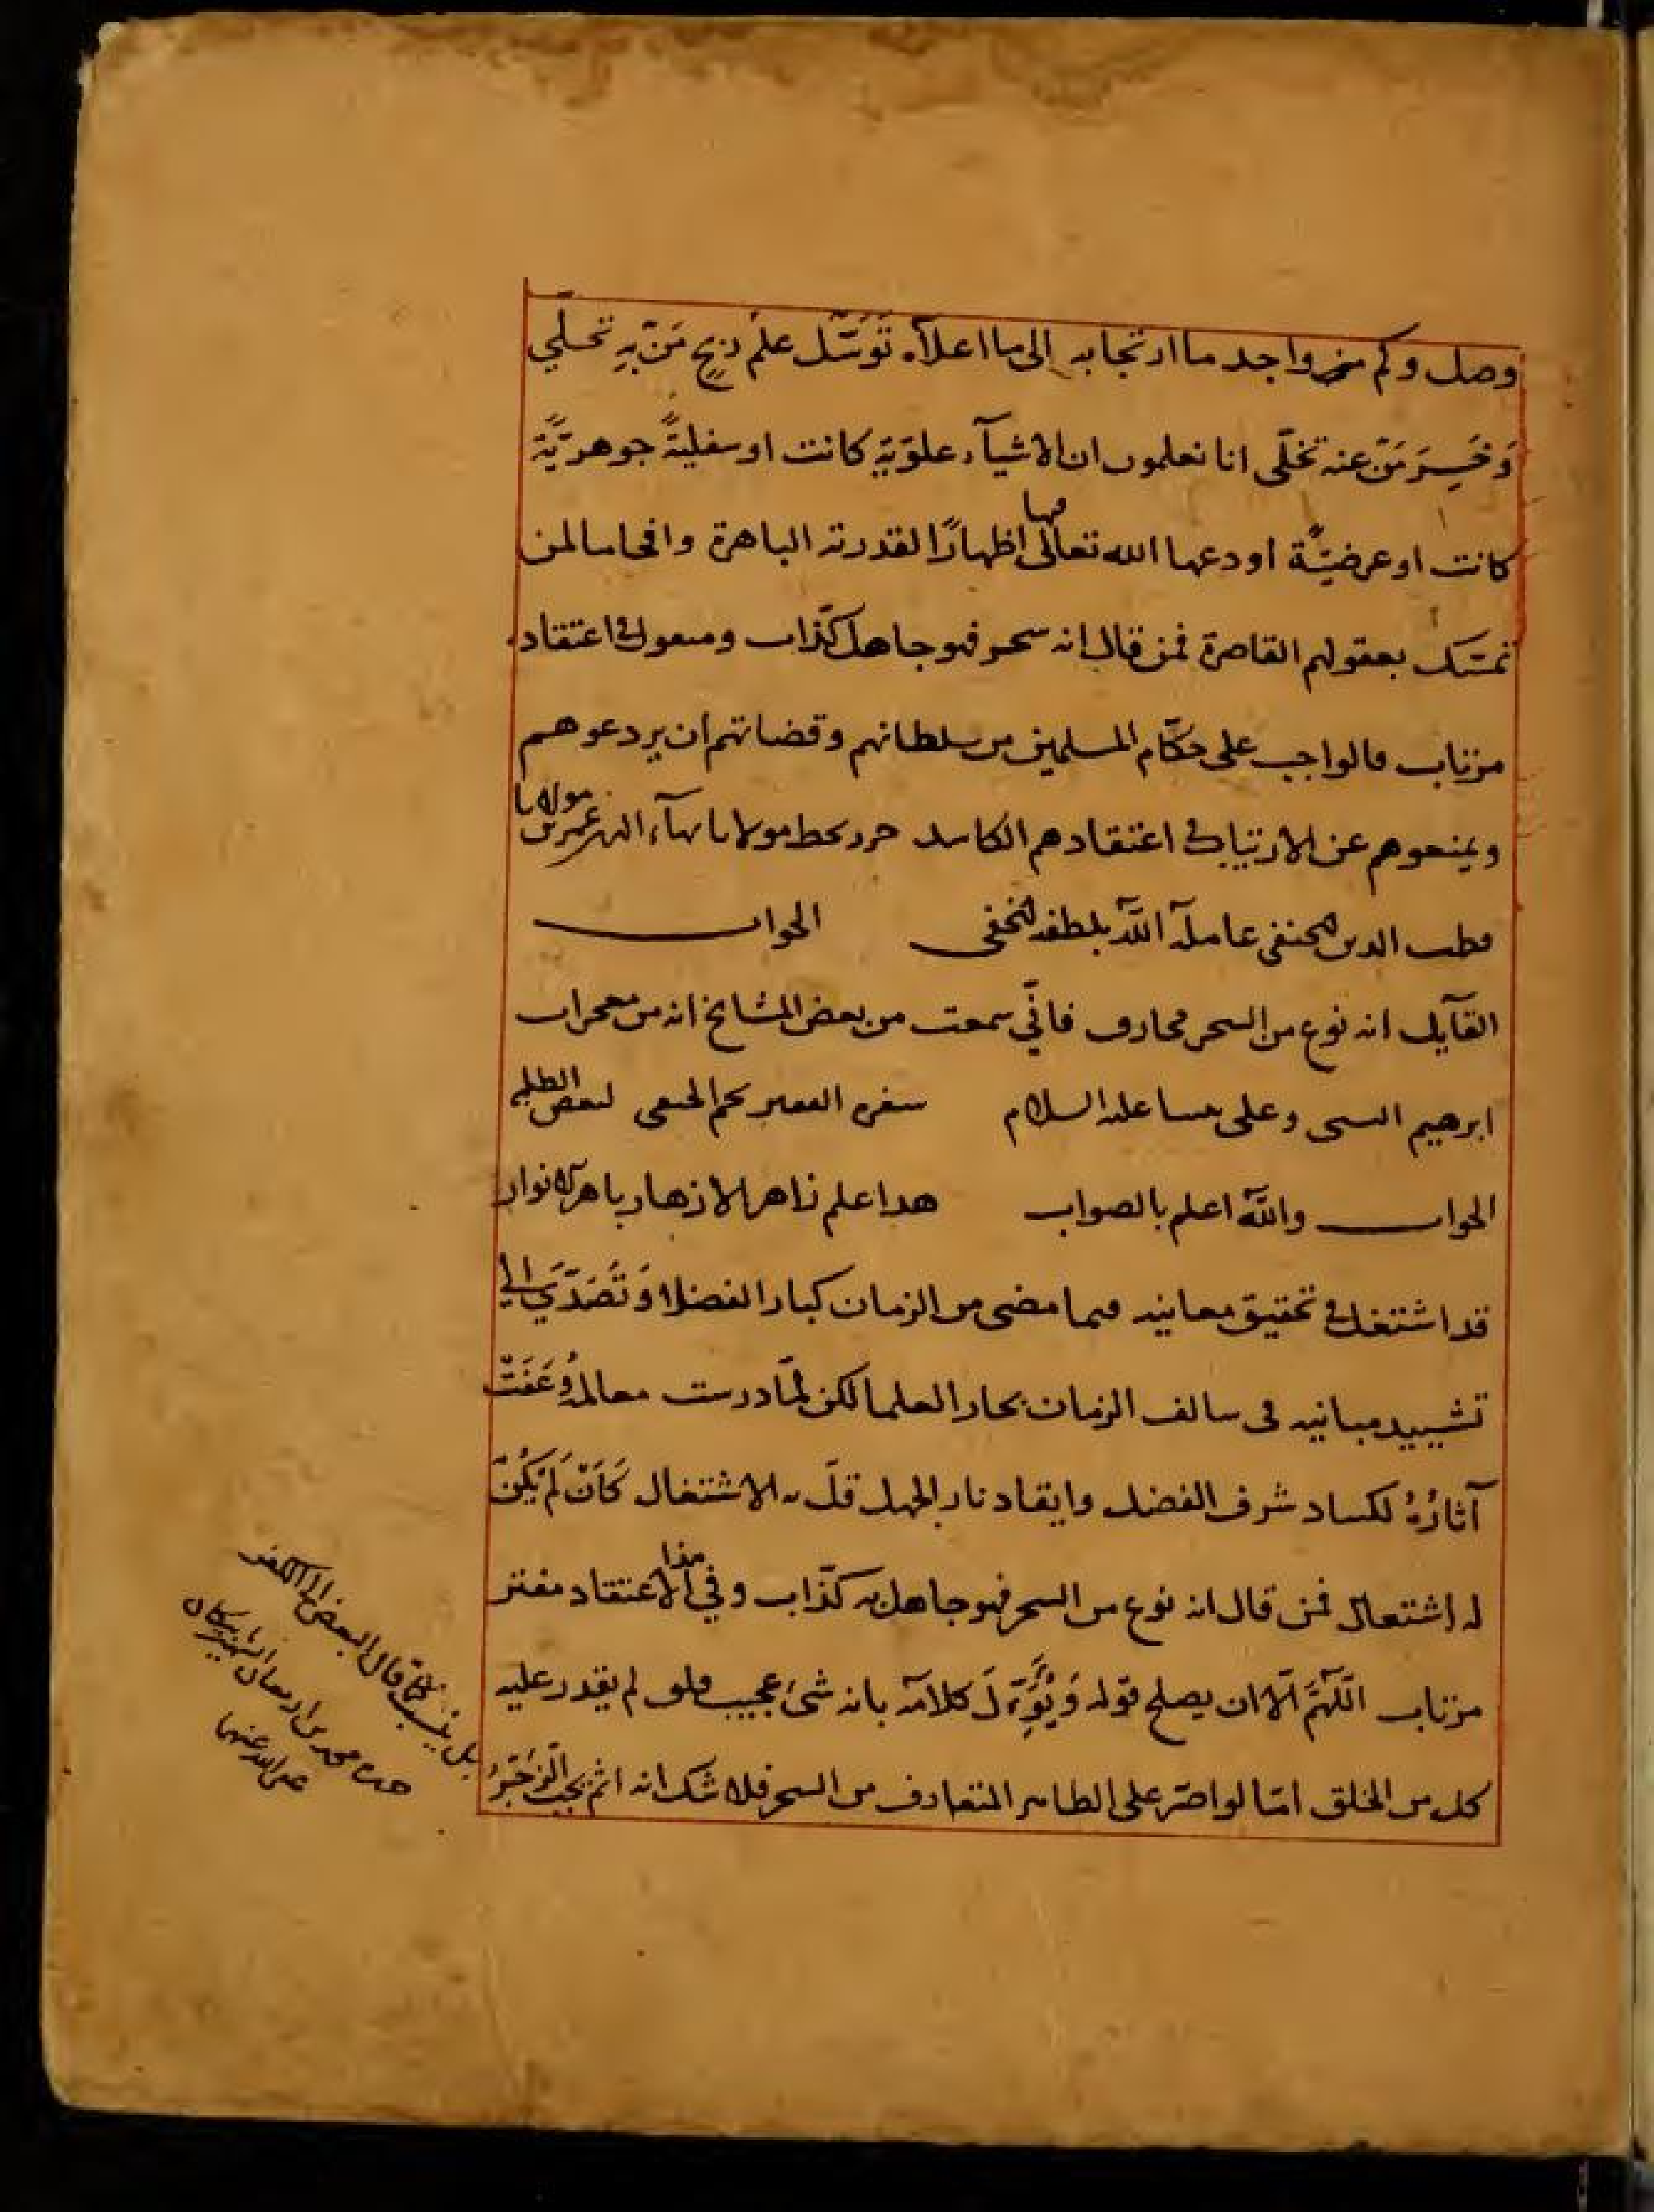 وصل وكم من واجد ما ارتجا به إلى ما اعلاه توسّل علم ربح مَن به تحلّي
وَخَسِرَ مَن عنه تخلّى انا نعلموں ان الاشيآء علويّة كانت او سفليةً جوهريّة
كانت او عرضيّة اودعها الله تعالى فيها اظهارًا لقدرته الباهرة وافحاما لمن
تمسّك بعقولهم القاصرة فمن قال انه سحر فهو جاهل كذّاب ومعول في اعتقاده
مرتاب فالواجب على حكّام المسلمين من سلطانهم وقضاتهم ان يردعوهم
ويمنعوهم عن الارتياب في اعتقادهم الكاسد حرر بخط مولانا بهآء الدين عمر بن مولانا
قطب الدين الحنفي عامله اللّه بلطفه الخفي الجواب
القآيل انه نوع من السحر مجازف فانّي سمعت من بعض المشايخ انه من معجزات
ابرهيم النبي وعلى نبينا عليه السلام الفقير الحنفي لبعض الطلبه
الجواب واللّه اعلم بالصواب هذا علم زاهر الازهار باهر الانوار
قد اشتغل في تحقيق معانيه فيما مضى من الزمان كبار الفضلا وَتَصَدّيَ الي
تشييد مبانيه في سالف الزمان بحار العلما لكن لمّا درست معالمُه وَعَفَتْ
آثارُهُ لكساد شرف الفضل وايقاد نار الجهل قلّ به الاشتغال كَاَنْ لَمْ يَكُنْ
له اشتعال فمن قال انه نوع من السحر فهو جاهل به كذّاب وفي هذا الاعتقاد مفتر
مرتاب اللّهمّ الّا ان يصلح قوله وَيُؤَوِّلَ كلامه بانه شئ عجيب فلو لم يقدر عليه
كل من الخلق امّا لو اصرّ على الظاهر المتعارف من السحر فلا شك انه اثم يجب الزجرُ